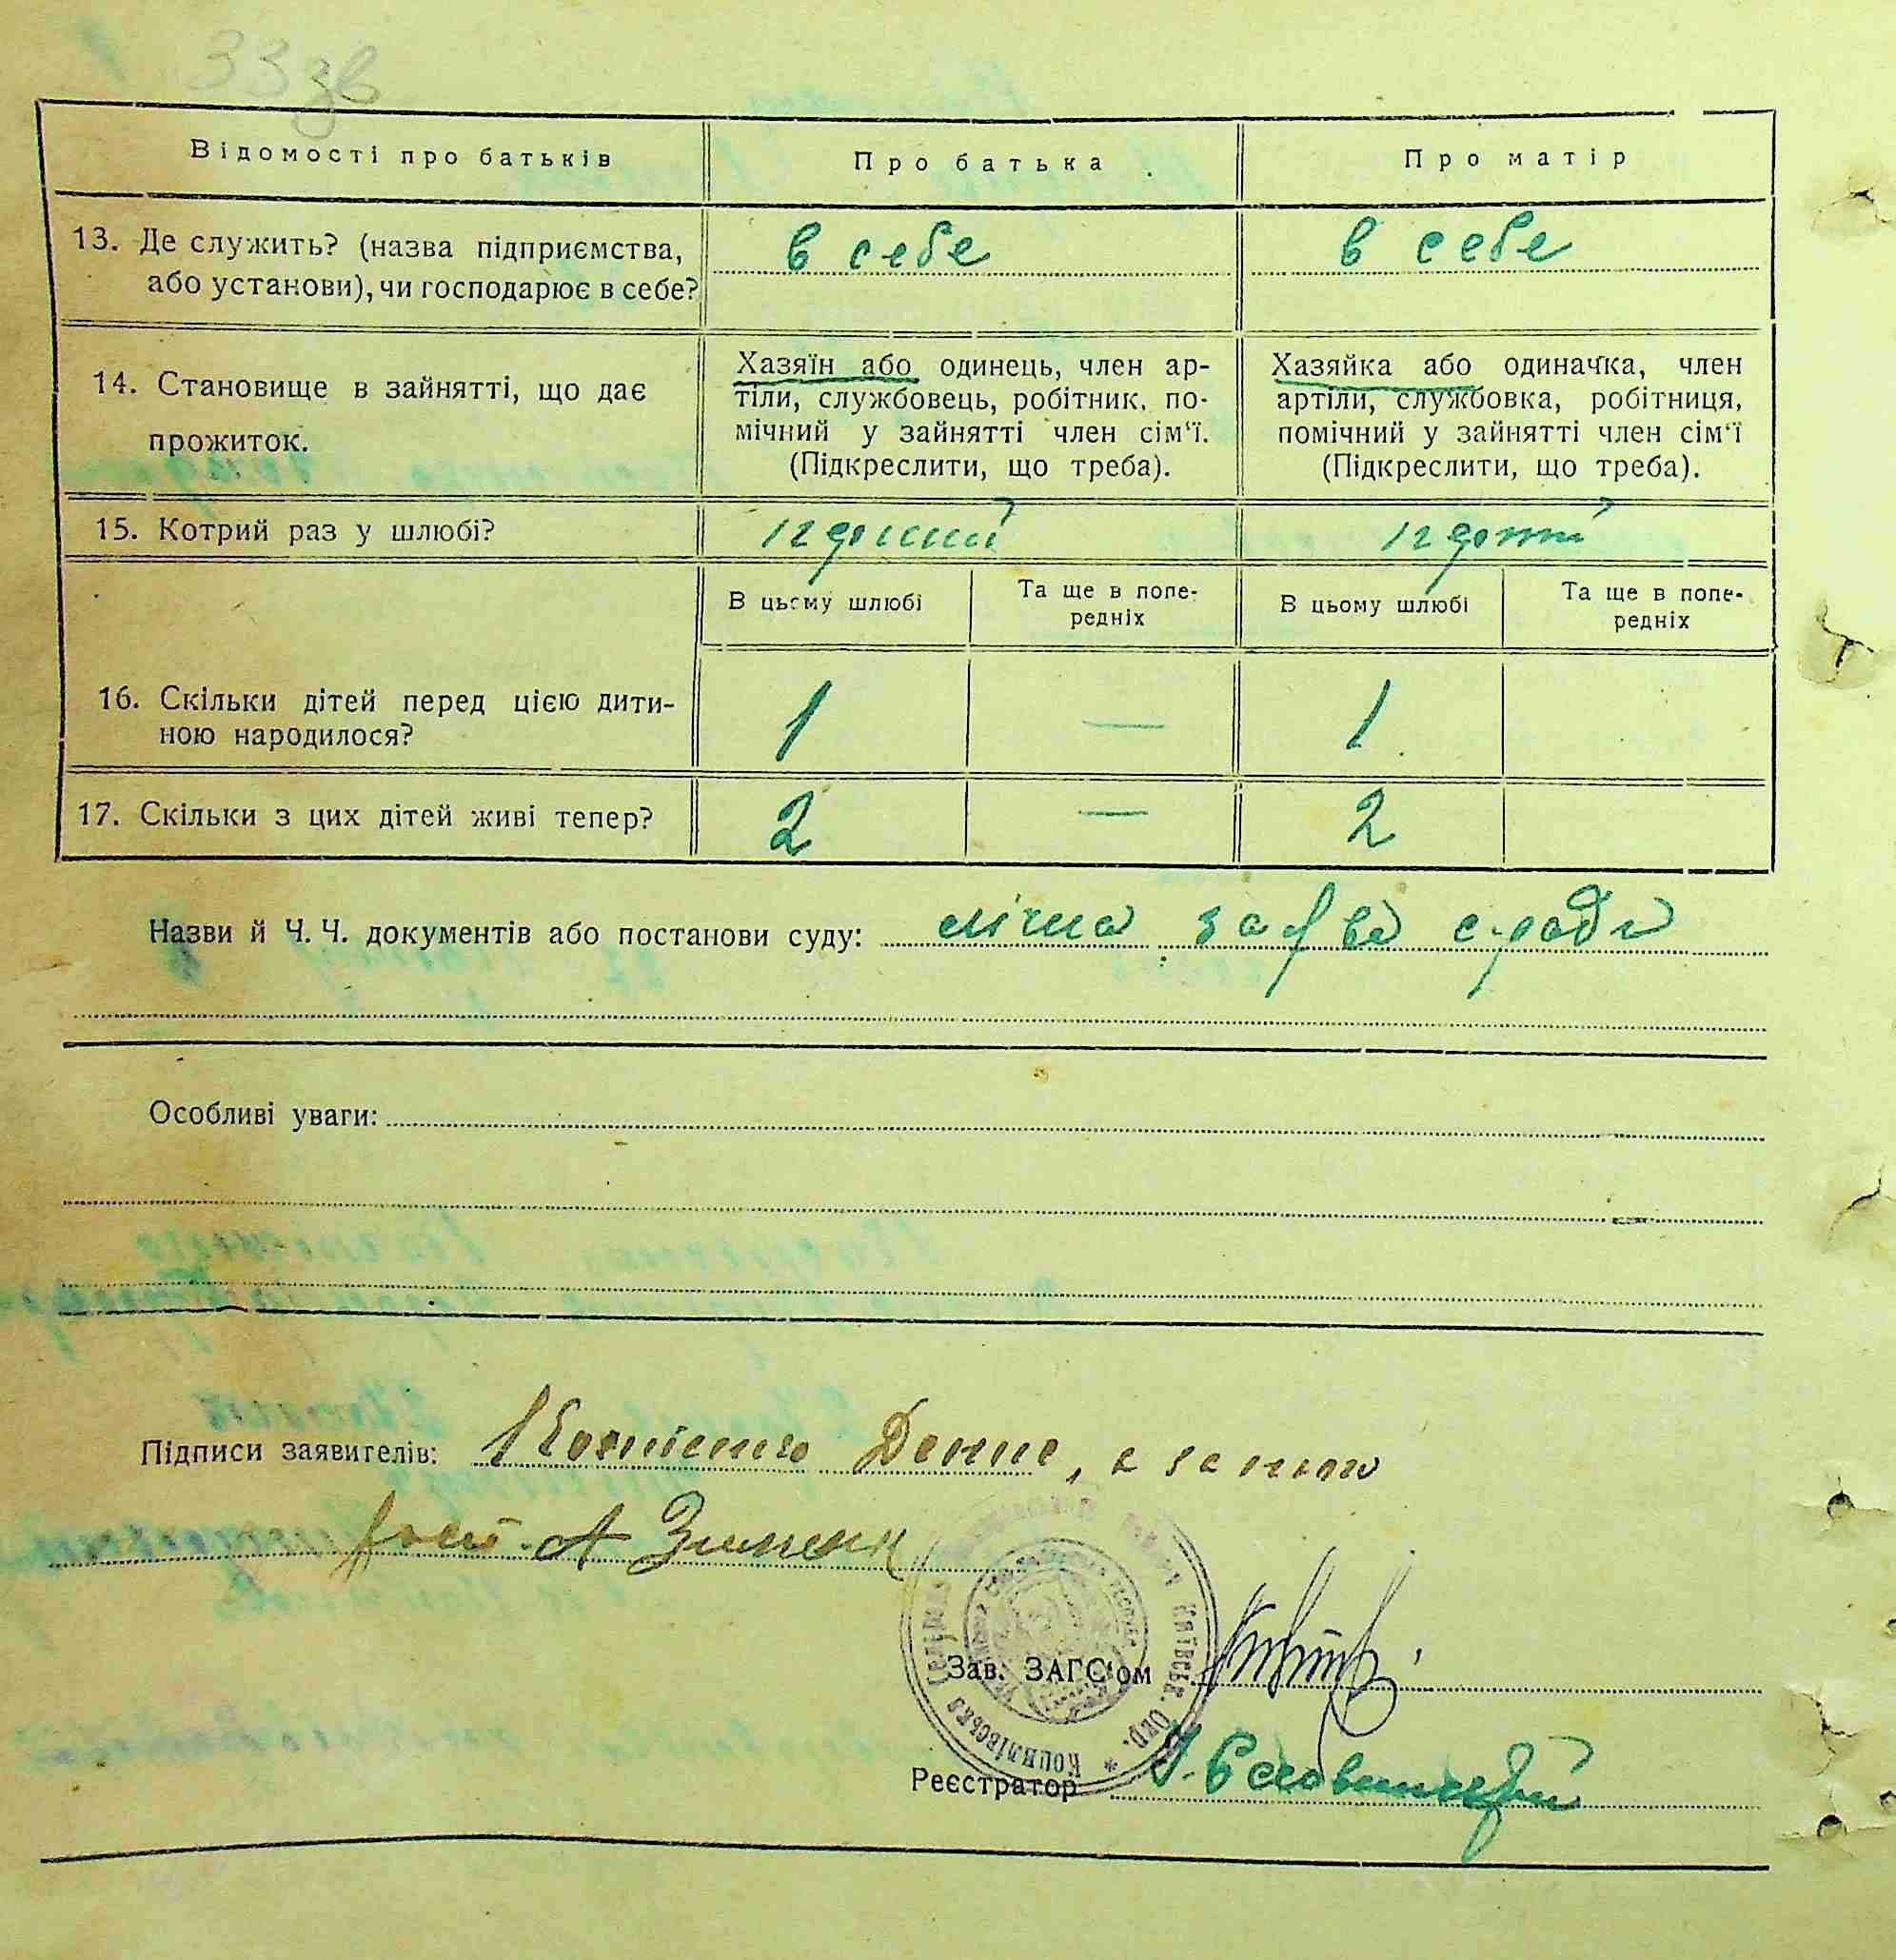 33 зв
Відомості про батьків
Про батька
Про матір
13. Де служить? (назва підприємства,
або установи), чи господарює в себе?
в себе
в себе
14. Становище в зайнятті, що дає
прожиток.
Хазяїн або одинець, член ар-
тіли, службовець, робітник, по-
мічний у зайнятті член сім'ї.
(Підкреслити, що треба).
Хазяйка або одиначка, член
артіли, службовка, робітниця,
помічний у зайнятті член сім'ї
(Підкреслити, що треба).
15. Котрий раз у шлюбі?
В цьому шлюбі
Та ще в попе-
редніх
В цьому шлюбі
Та ще в попе-
редніх
16. Скільки дітей перед цією дити-
ною народилося?
1
—
1
17. Скільки з цих дітей живі тепер?
2
—
2
Назви й Ч. Ч. документів або постанови суду:
Особливі уваги:
Підписи заявителів:
А Зинен
Зав. ЗАГС'ом
Реєстратор